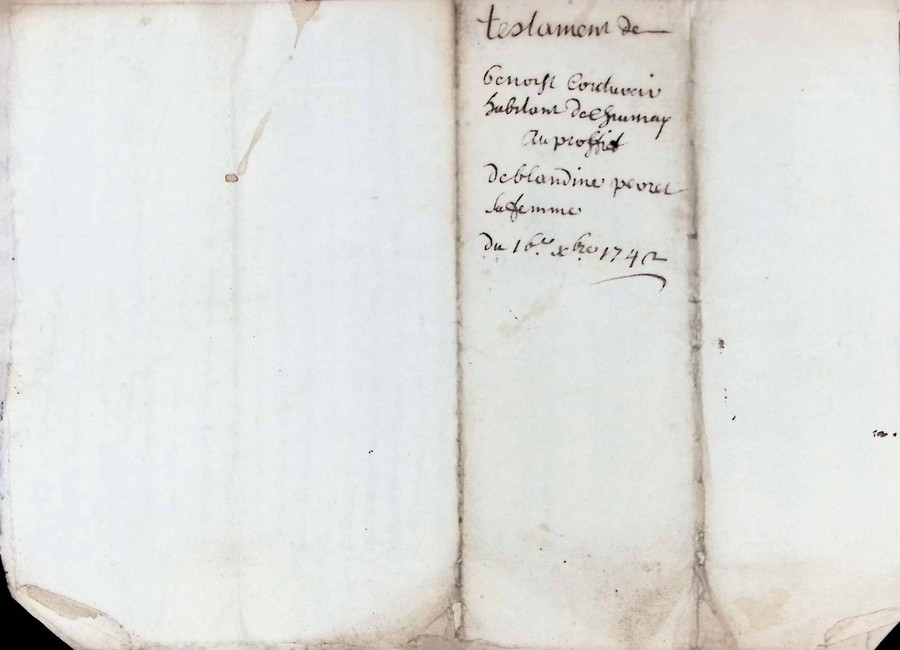 testament de
benoist Corduvoir
habitant de Chumay
Au proffit
de blandine peoret
sa femme
du 16e xbre 1742